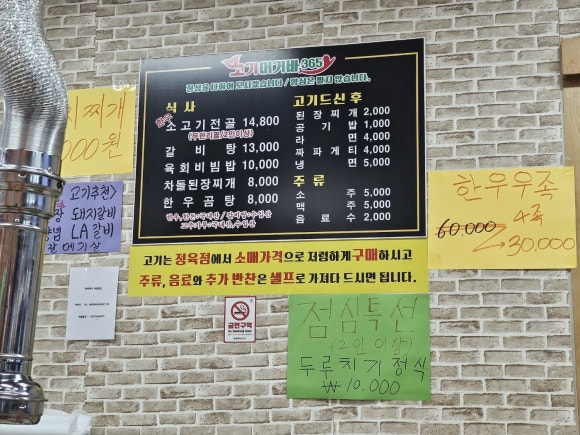 고기머거바365
정성을 다하여 모시겠습니다 / 양심은 팔지 않았습니다.
식 사
한우
소고기전골 14,800
(무한리필/2인이상)
갈 비 탕 13,000
육회비빔밥 10,000
차돌된장찌개 8,000
한 우 곰 탕 8,000
고기드신 후
된 장 찌 개 2,000
공 기 밥 1,000
라 면 4,000
짜 파 게 티 4,000
냉 면 5,000
주 류
소 주 5,000
맥 주 5,000
음 료 수 2,000
고기는 정육점에서 소매가격으로 저렴하게 구매하시고
주류, 음료와 추가 반찬은 셀프로 가져다 드시면 됩니다.
찌개
000원
고기추천>
돼지갈비
LA갈비
한우우족
4족
60.000
30.000
금연구역
점심특선
(2인 이상)
두루치기정식
₩10.000